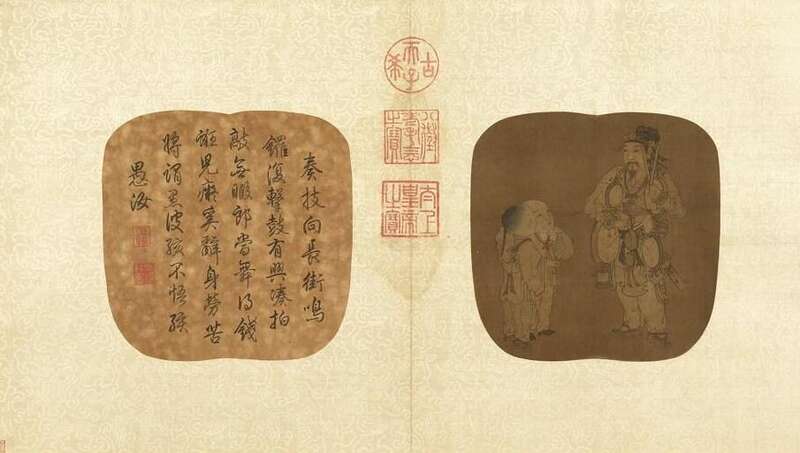 奏技向長街鳴
鑼復擊鼓有興湊拍
敲無暇郎當舞得錢
誑兒奚辭身勞苦
將謂愚彼孩不悟孩
愚汝
古希天子
八徵耄念之寶
太上皇帝之寶